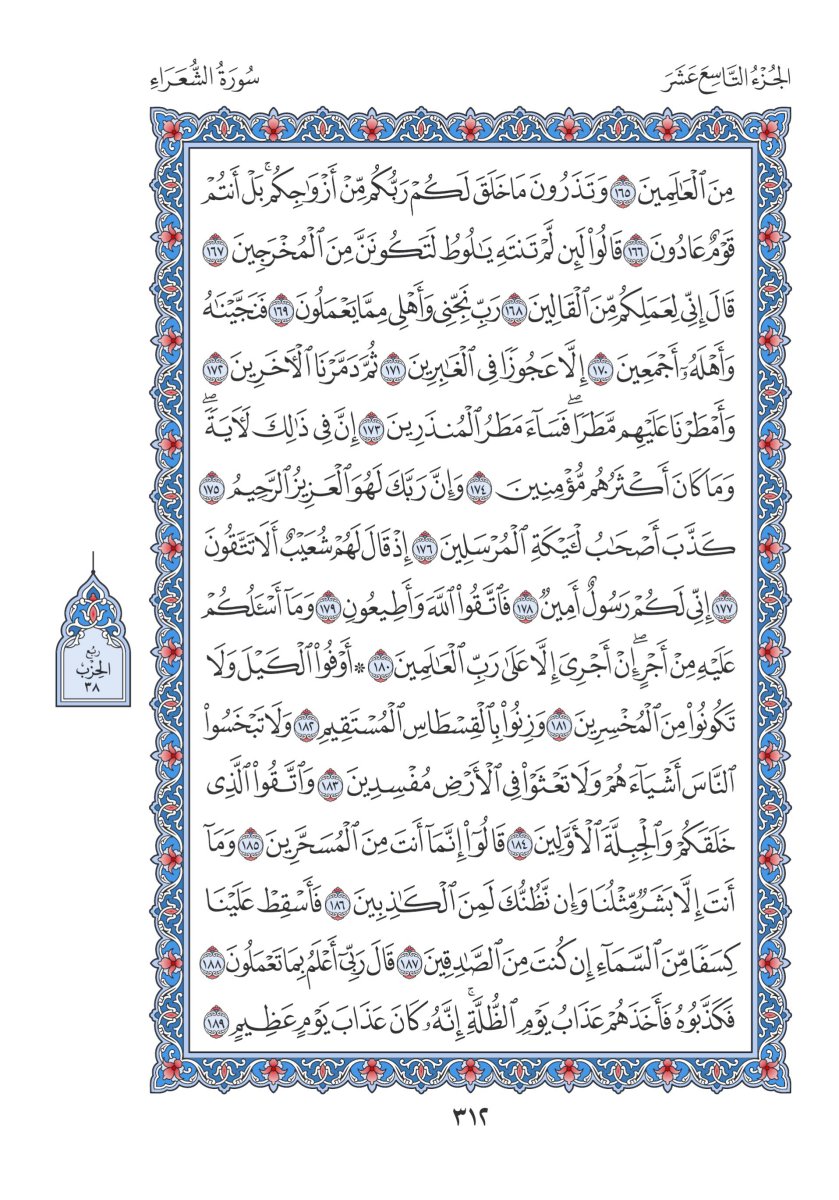 الجُزْءُ التَّاسِعَ عَشَرَ
سُورَةُ الشُّعَرَاءِ
مِنَ ٱلْعَٰلَمِينَ ١٦٥ وَتَذَرُونَ مَا خَلَقَ لَكُمْ رَبُّكُم مِّنْ أَزْوَٰجِكُمۚ بَلْ أَنتُمْ
قَوْمٌ عَادُونَ ١٦٦ قَالُوا۟ لَئِن لَّمْ تَنتَهِ يَٰلُوطُ لَتَكُونَنَّ مِنَ ٱلْمُخْرَجِينَ ١٦٧
قَالَ إِنِّى لِعَمَلِكُم مِّنَ ٱلْقَالِينَ ١٦٨ رَبِّ نَجِّنِى وَأَهْلِى مِمَّا يَعْمَلُونَ ١٦٩ فَنَجَّيْنَٰهُ
وَأَهْلَهُۥٓ أَجْمَعِينَ ١٧٠ إِلَّا عَجُوزًا فِى ٱلْغَٰبِرِينَ ١٧١ ثُمَّ دَمَّرْنَا ٱلْـَٔاخَرِينَ ١٧٢
وَأَمْطَرْنَا عَلَيْهِم مَّطَرًاۖ فَسَآءَ مَطَرُ ٱلْمُنذَرِينَ ١٧٣ إِنَّ فِى ذَٰلِكَ لَـَٔايَةًۖ
وَمَا كَانَ أَكْثَرُهُم مُّؤْمِنِينَ ١٧٤ وَإِنَّ رَبَّكَ لَهُوَ ٱلْعَزِيزُ ٱلرَّحِيمُ ١٧٥
كَذَّبَ أَصْحَٰبُ لْـَٔيْكَةِ ٱلْمُرْسَلِينَ ١٧٦ إِذْ قَالَ لَهُمْ شُعَيْبٌ أَلَا تَتَّقُونَ
١٧٧ إِنِّى لَكُمْ رَسُولٌ أَمِينٌ ١٧٨ فَٱتَّقُوا۟ ٱللَّهَ وَأَطِيعُونِ ١٧٩ وَمَآ أَسْـَٔلُكُمْ
عَلَيْهِ مِنْ أَجْرٍۖ إِنْ أَجْرِىَ إِلَّا عَلَىٰ رَبِّ ٱلْعَٰلَمِينَ ١٨٠ ۞ أَوْفُوا۟ ٱلْكَيْلَ وَلَا
تَكُونُوا۟ مِنَ ٱلْمُخْسِرِينَ ١٨١ وَزِنُوا۟ بِٱلْقِسْطَاسِ ٱلْمُسْتَقِيمِ ١٨٢ وَلَا تَبْخَسُوا۟
ٱلنَّاسَ أَشْيَآءَهُمْ وَلَا تَعْثَوْا۟ فِى ٱلْأَرْضِ مُفْسِدِينَ ١٨٣ وَٱتَّقُوا۟ ٱلَّذِى
خَلَقَكُمْ وَٱلْجِبِلَّةَ ٱلْأَوَّلِينَ ١٨٤ قَالُوٓا۟ إِنَّمَآ أَنتَ مِنَ ٱلْمُسَحَّرِينَ ١٨٥ وَمَآ
أَنتَ إِلَّا بَشَرٌ مِّثْلُنَا وَإِن نَّظُنُّكَ لَمِنَ ٱلْكَٰذِبِينَ ١٨٦ فَأَسْقِطْ عَلَيْنَا
كِسَفًا مِّنَ ٱلسَّمَآءِ إِن كُنتَ مِنَ ٱلصَّٰدِقِينَ ١٨٧ قَالَ رَبِّىٓ أَعْلَمُ بِمَا تَعْمَلُونَ ١٨٨
فَكَذَّبُوهُ فَأَخَذَهُمْ عَذَابُ يَوْمِ ٱلظُّلَّةِۚ إِنَّهُۥ كَانَ عَذَابَ يَوْمٍ عَظِيمٍ ١٨٩
رُبْع
الحِزْب
٣٨
٣١٢